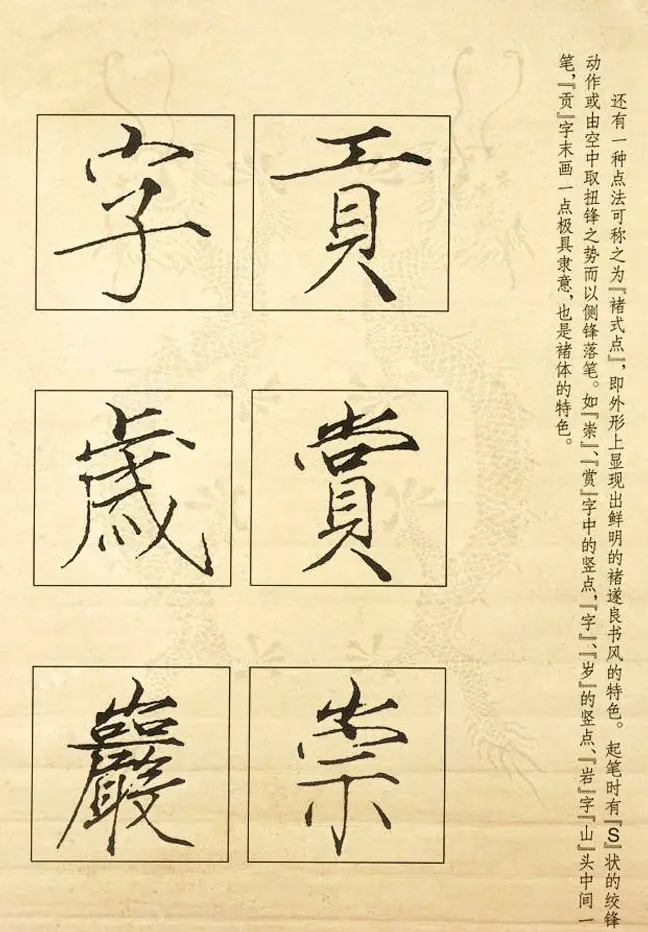 还有一种点法可称之为『褚式点』，即外形上显现出鲜明的褚遂良书风的特色。起笔时有『S』状的绞锋
动作或由空中取扭锋之势而以侧锋落笔。如『崇』、『赏』字中的竖点，『字』、『岁』的竖点、『岩』字『山』头中间一
笔，『贡』字末画一点极具隶意，也是褚体的特色。
貢
賞
崇
字
歳
巖